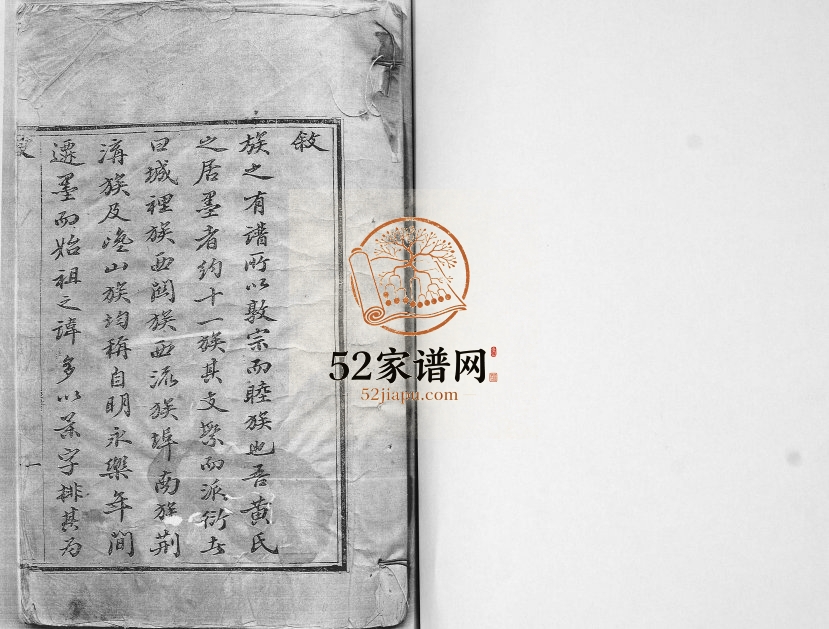 敘
族之有譜所以敦宗而睦族也吾黃氏
之居墨者約十一族其支繁而派衍者
曰城裡族西關族西流族埠南族荆
溝族及嵯山族均稱自明永樂年間
遷墨而始祖之諱多以某字排其為
一
52家谱网
52jiapu.com